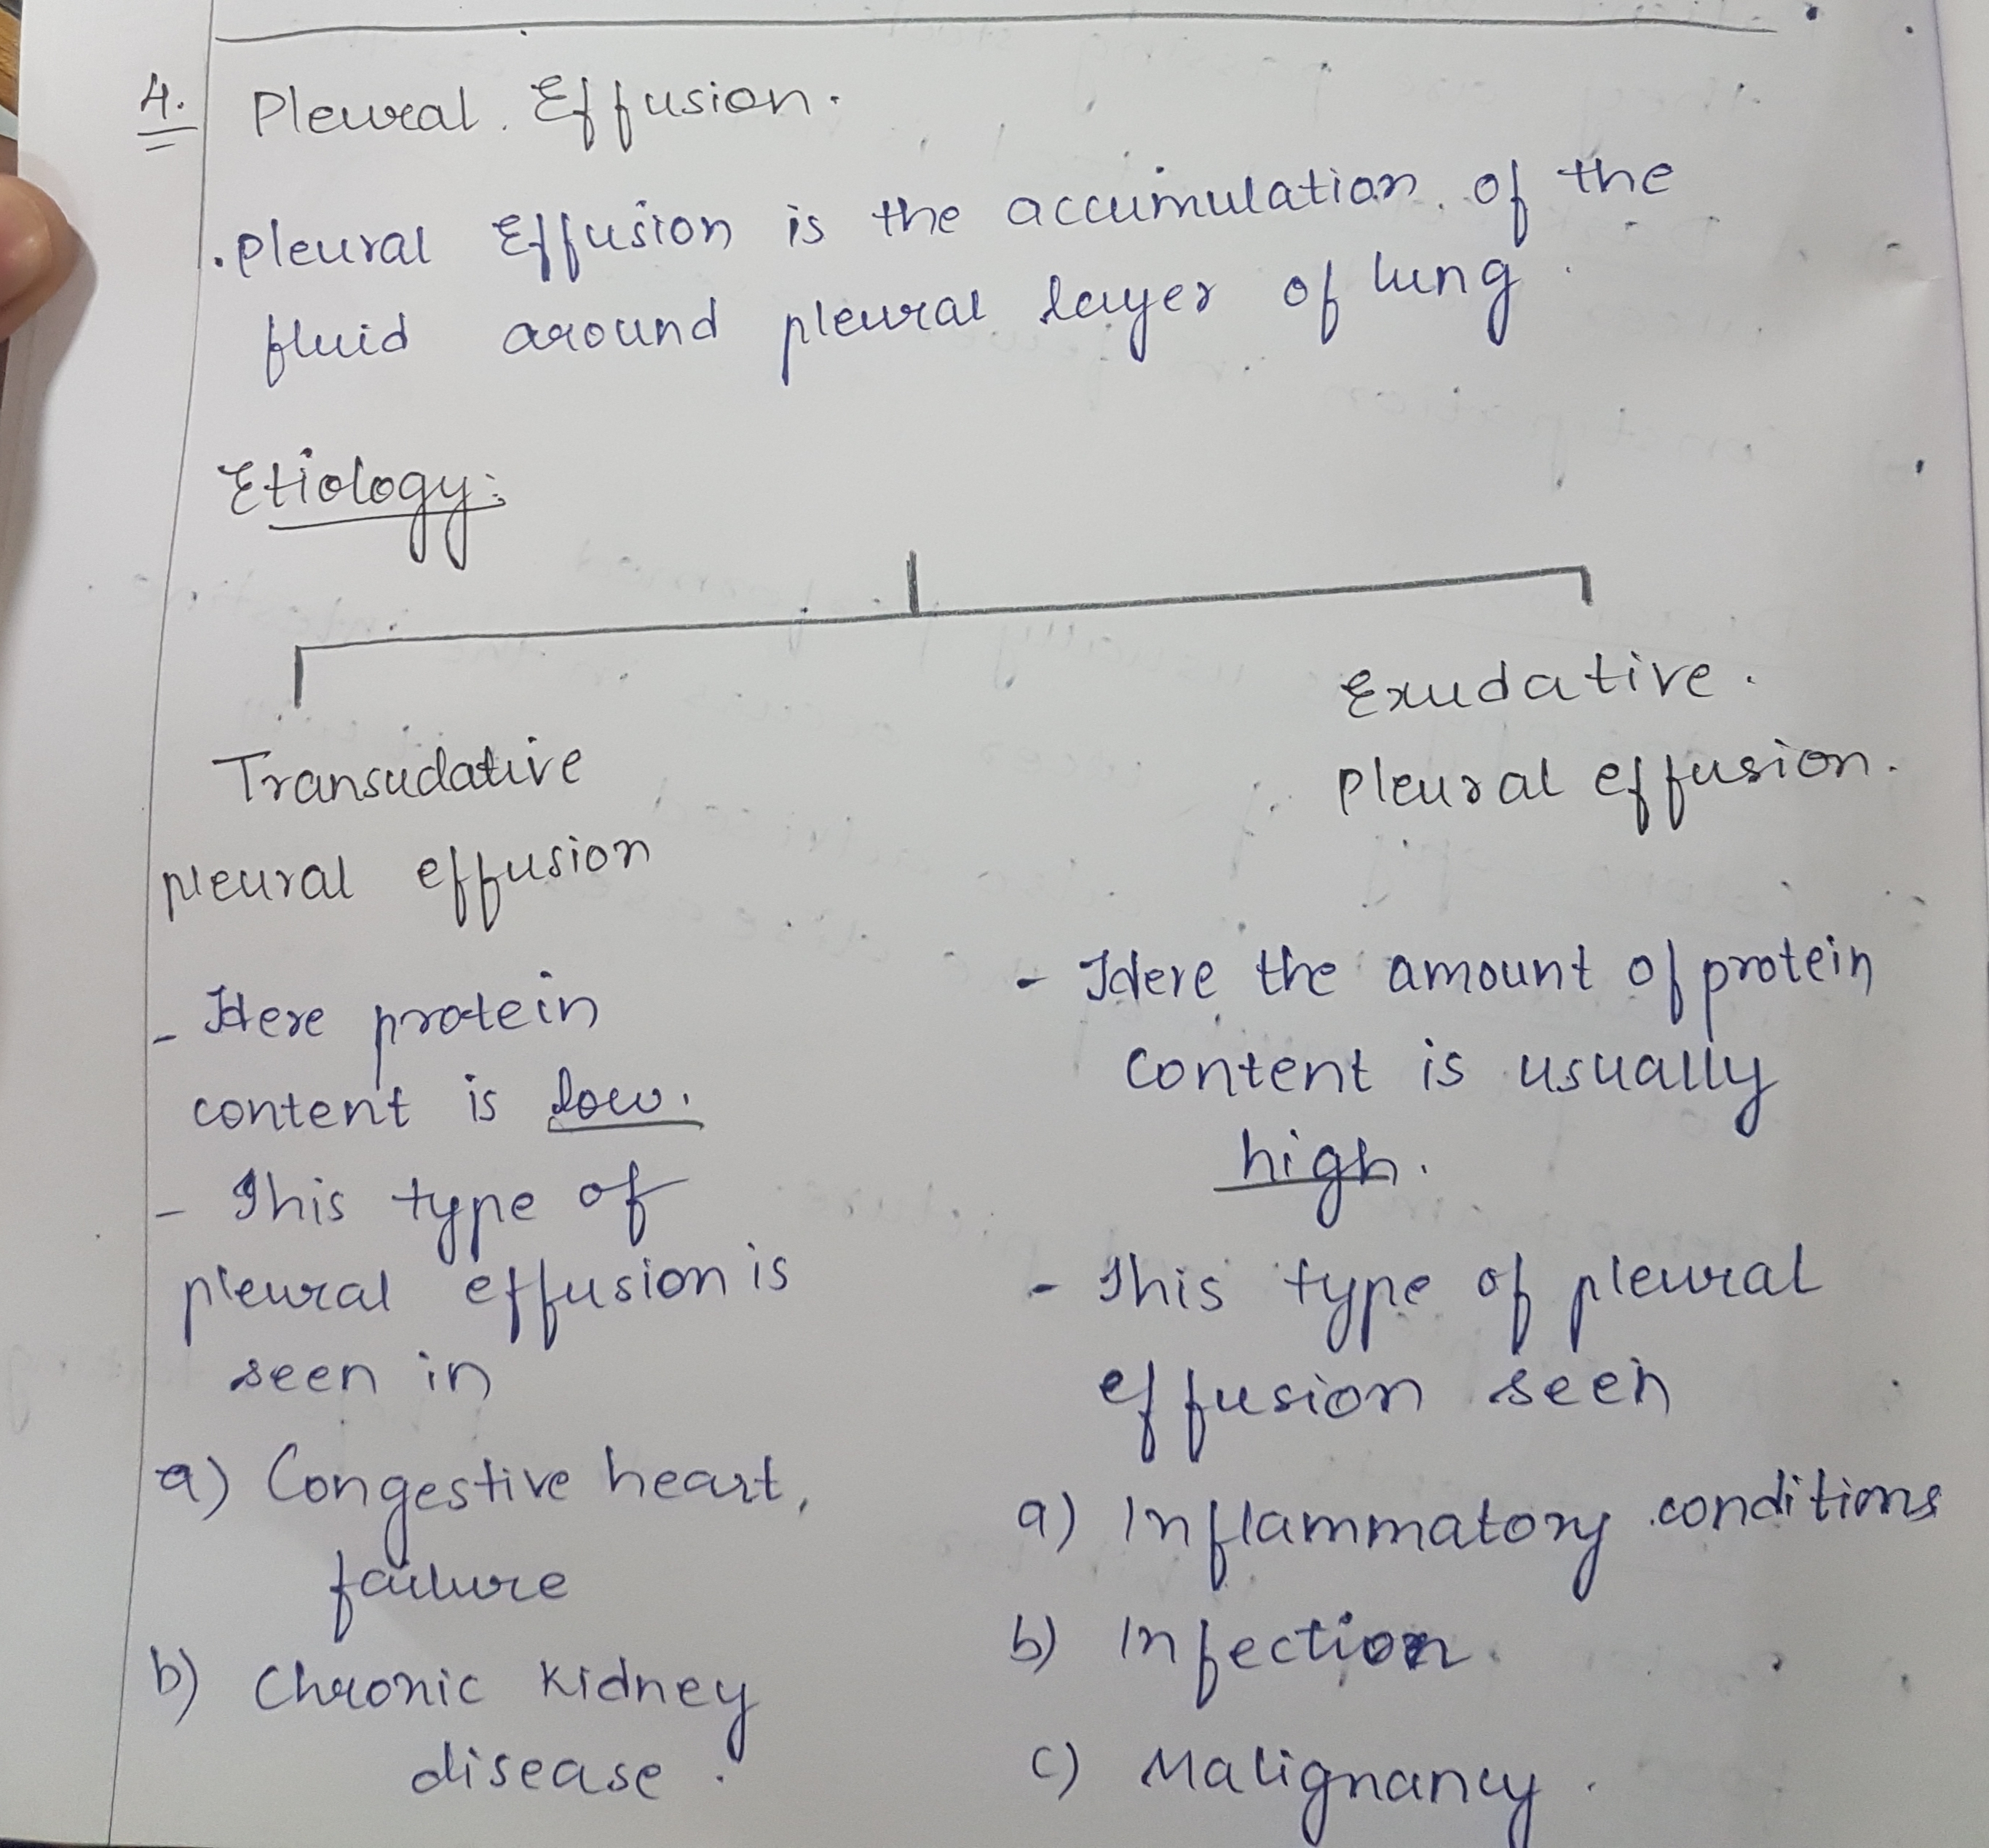 4. Pleural Effusion.
. Pleural Effusion is the accumulation of the
fluid around pleural layer of lung
Etiology:
Transudative
pleural effusion
- Here protein
content is low.
- This type of
pleural effusion is
seen in
a) Congestive heart
failure
b) Chronic kidney
disease.
Exudative.
Pleural effusion.
- Here the amount of protein
content is usually
high.
- This type of pleural
effusion seen
a) Inflammatory conditions
b) Infection.
c) Malignancy.